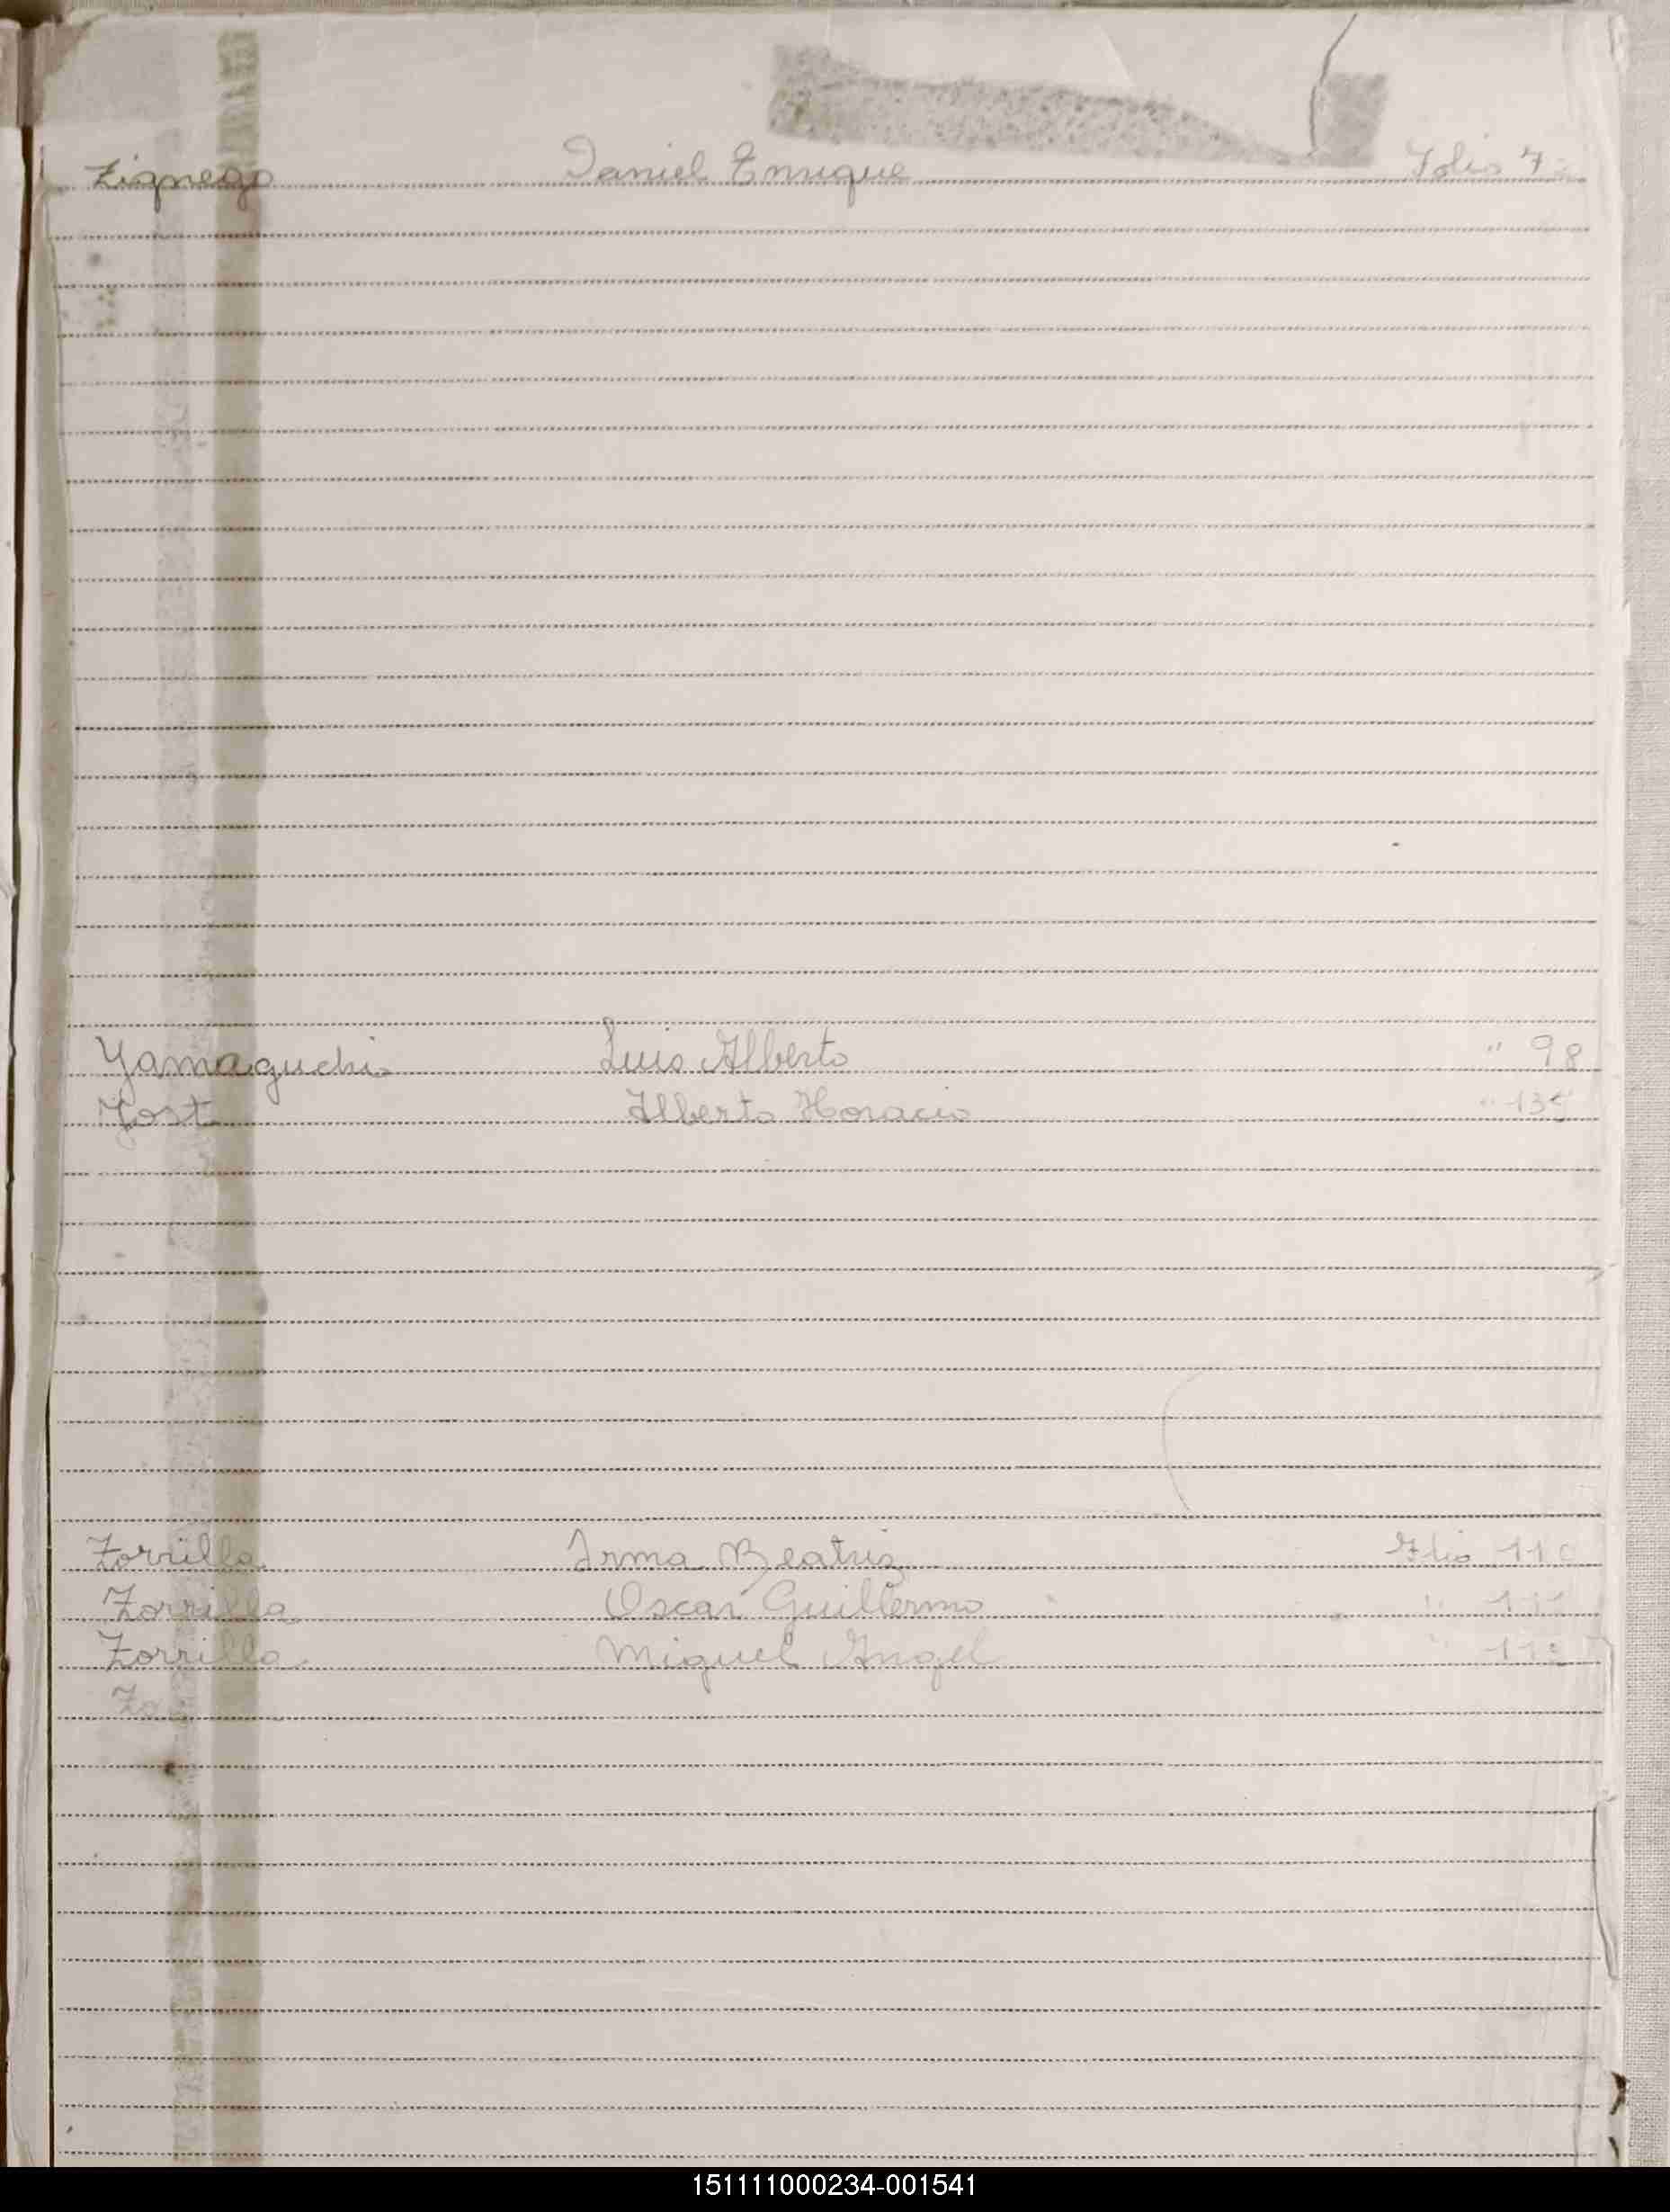 Zignego Daniel Enrique Folio 7
Yamaguchi Luis Alberto " 98
Yost Alberto Horacio " 135
Zorrilla Irma Beatriz Folio 110
Zorrilla Oscar Guillermo " 111
Zorrilla Miguel Angel " 112
Zo
151111000234-001541